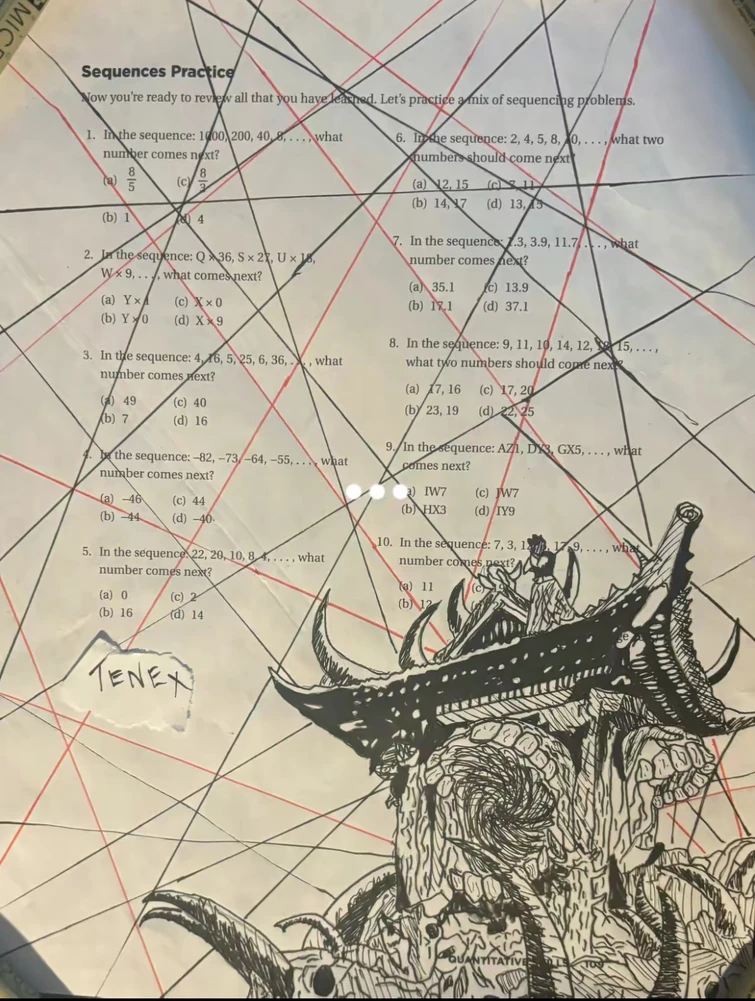 MICR
Sequences Practice
Now you're ready to review all that you have learned. Let's practice a mix of sequencing problems.
1. In the sequence: 1000, 200, 40, 8, . . . , what
number comes next?
(a) 8/5 (c) 8/3
(b) 1 (d) 4
2. In the sequence: Q × 36, S × 27, U × 18,
W × 9, . . . , what comes next?
(a) Y × 1 (c) X × 0
(b) Y × 0 (d) X × 9
3. In the sequence: 4, 16, 5, 25, 6, 36, . . . , what
number comes next?
(a) 49 (c) 40
(b) 7 (d) 16
4. In the sequence: –82, –73, –64, –55, . . . , what
number comes next?
(a) –46 (c) 44
(b) –44 (d) –40
5. In the sequence: 22, 20, 10, 8, 4, . . . , what
number comes next?
(a) 0 (c) 2
(b) 16 (d) 14
6. In the sequence: 2, 4, 5, 8, 10, . . . , what two
numbers should come next?
(a) 12, 15 (c) 7, 11
(b) 14, 17 (d) 13, 15
7. In the sequence: 1.3, 3.9, 11.7, . . . , what
number comes next?
(a) 35.1 (c) 13.9
(b) 17.1 (d) 37.1
8. In the sequence: 9, 11, 10, 14, 12, 15, . . . ,
what two numbers should come next?
(a) 17, 16 (c) 17, 20
(b) 23, 19 (d) 22, 25
9. In the sequence: AZ1, DY3, GX5, . . . , what
comes next?
(a) IW7 (c) JW7
(b) HX3 (d) IY9
10. In the sequence: 7, 3, 17, 9, . . . , what
number comes next?
(a) 11 (c)
(b) 12
TENEX
QUANTITATIVE